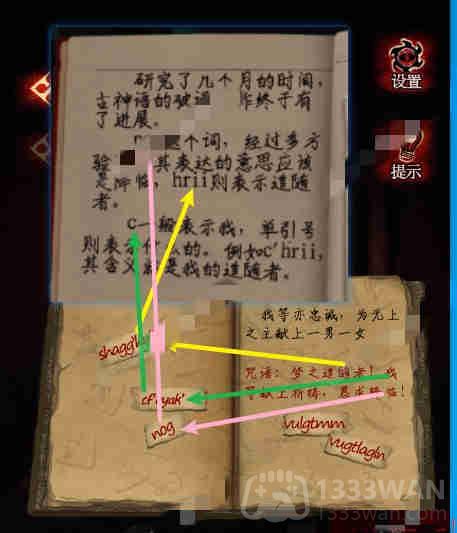 研究了几个月的时间,
主神语的破 终于有
了进展。
个词, 经过多方
验 其表达的意思应该
是降临, hrii则表示追随
者。
c一般表示我, 单引号
则表示 的。例如c'hrii,
其含义 是我的追随者。
设置
提示
我等亦忠诚, 为无上
之主献上一男一女
咒语: 梦之追随者! 我
献上祈祷, 恳求降临!
nog
vulgtmm
vugtlagln
1333WAN
1333wan.com